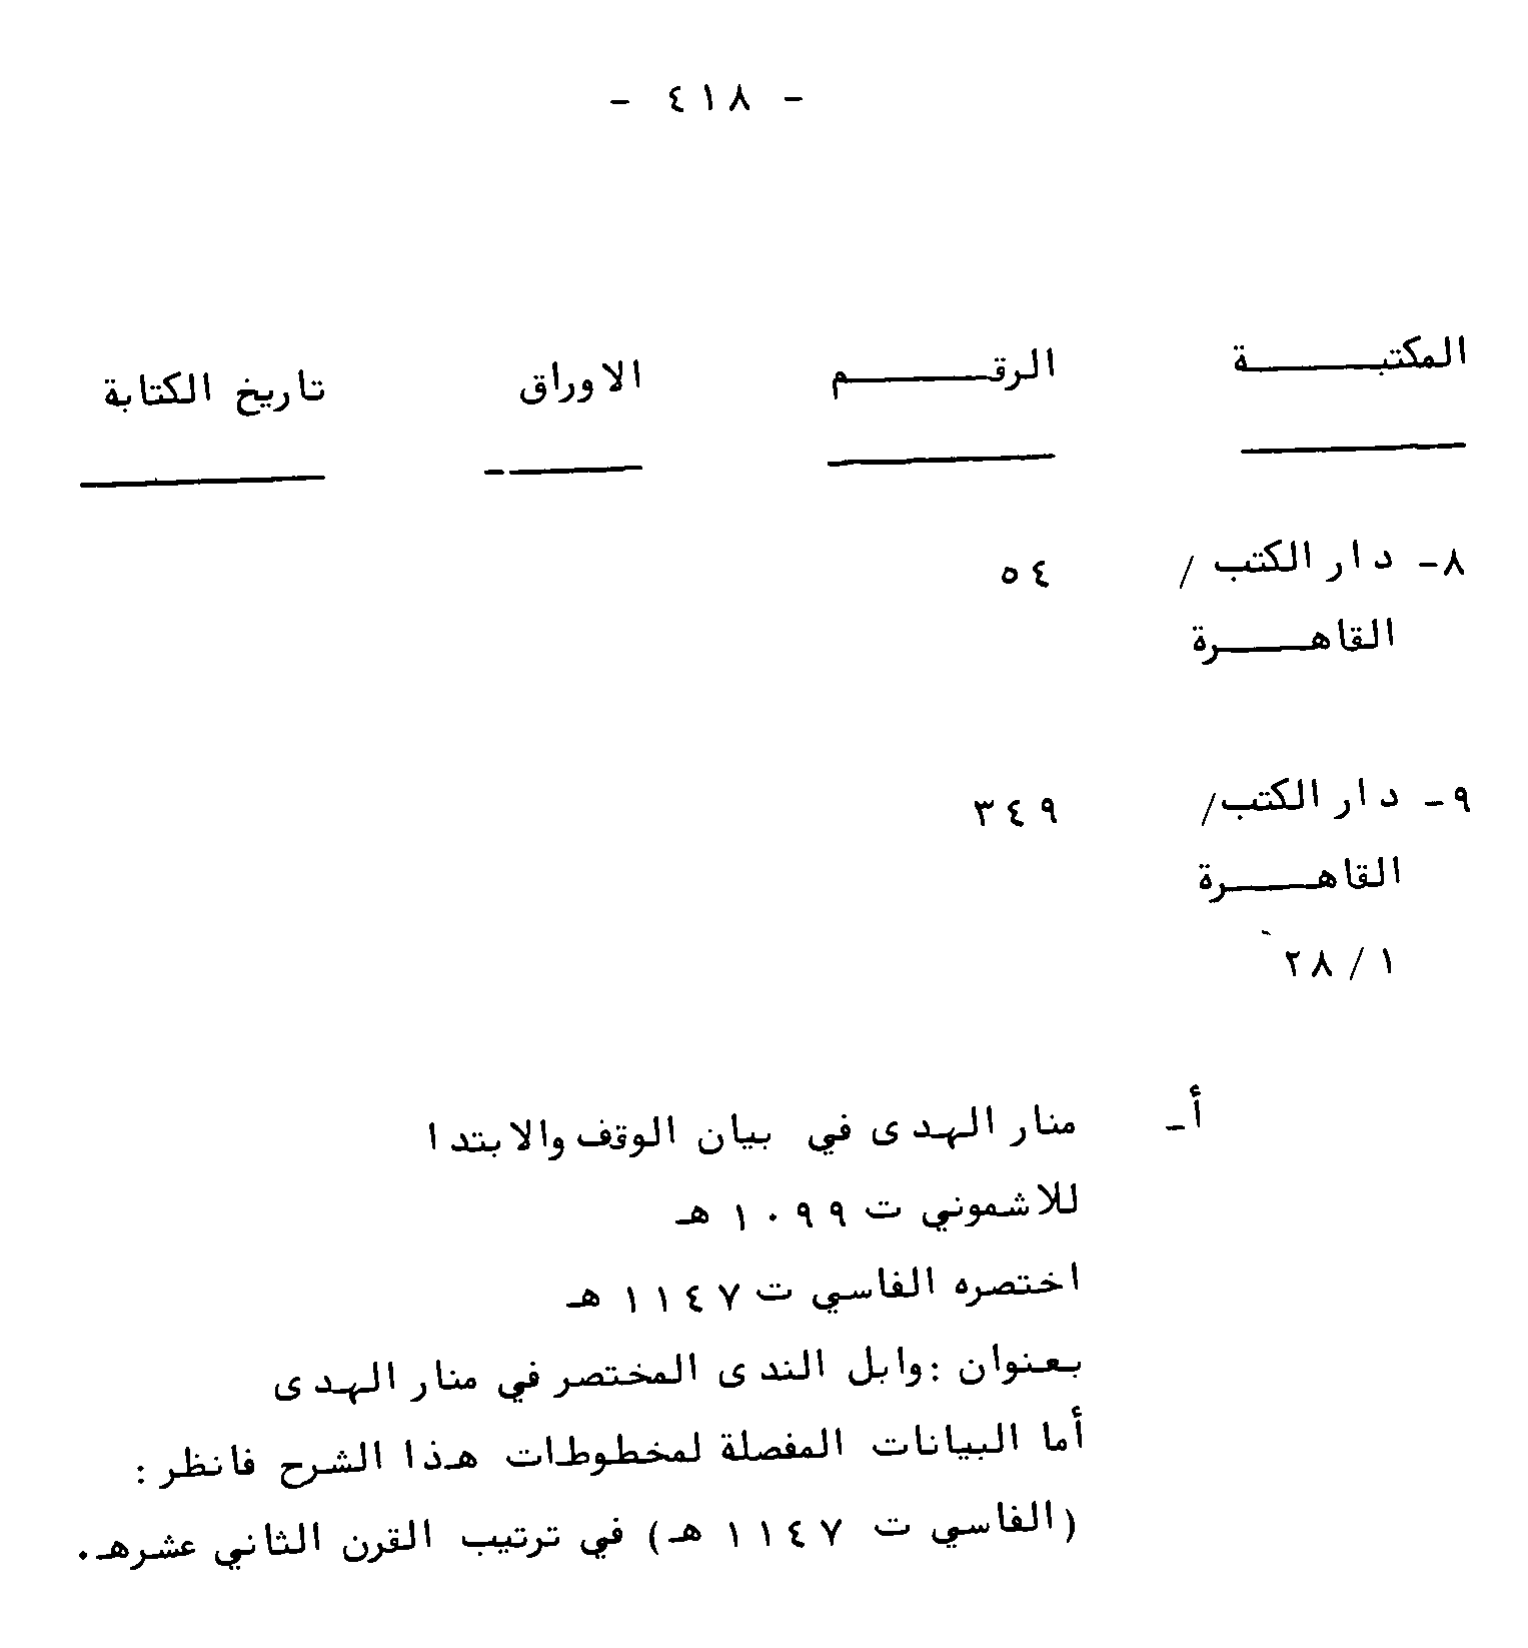 - ٤١٨ -
المكتبة الرقم الاوراق تاريخ الكتابة
٨- دار الكتب / ٥٤
القاهرة
٩- دار الكتب/ ٣٤٩
القاهرة
٢٨/١
أ- منار الهدى في بيان الوقف والابتدا
للاشموني ت ١٠٩٩ هـ
اختصره الفاسي ت ١١٤٧ هـ
بعنوان :وابل الندى المختصر في منار الهدى
أما البيانات المفصلة لمخطوطات هذا الشرح فانظر :
(الفاسي ت ١١٤٧ هـ) في ترتيب القرن الثاني عشرهـ.